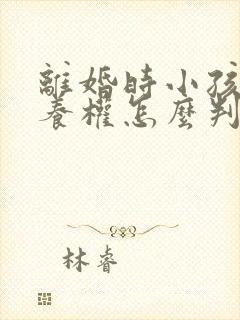 離婚時小孩
養權怎麼判
林睿